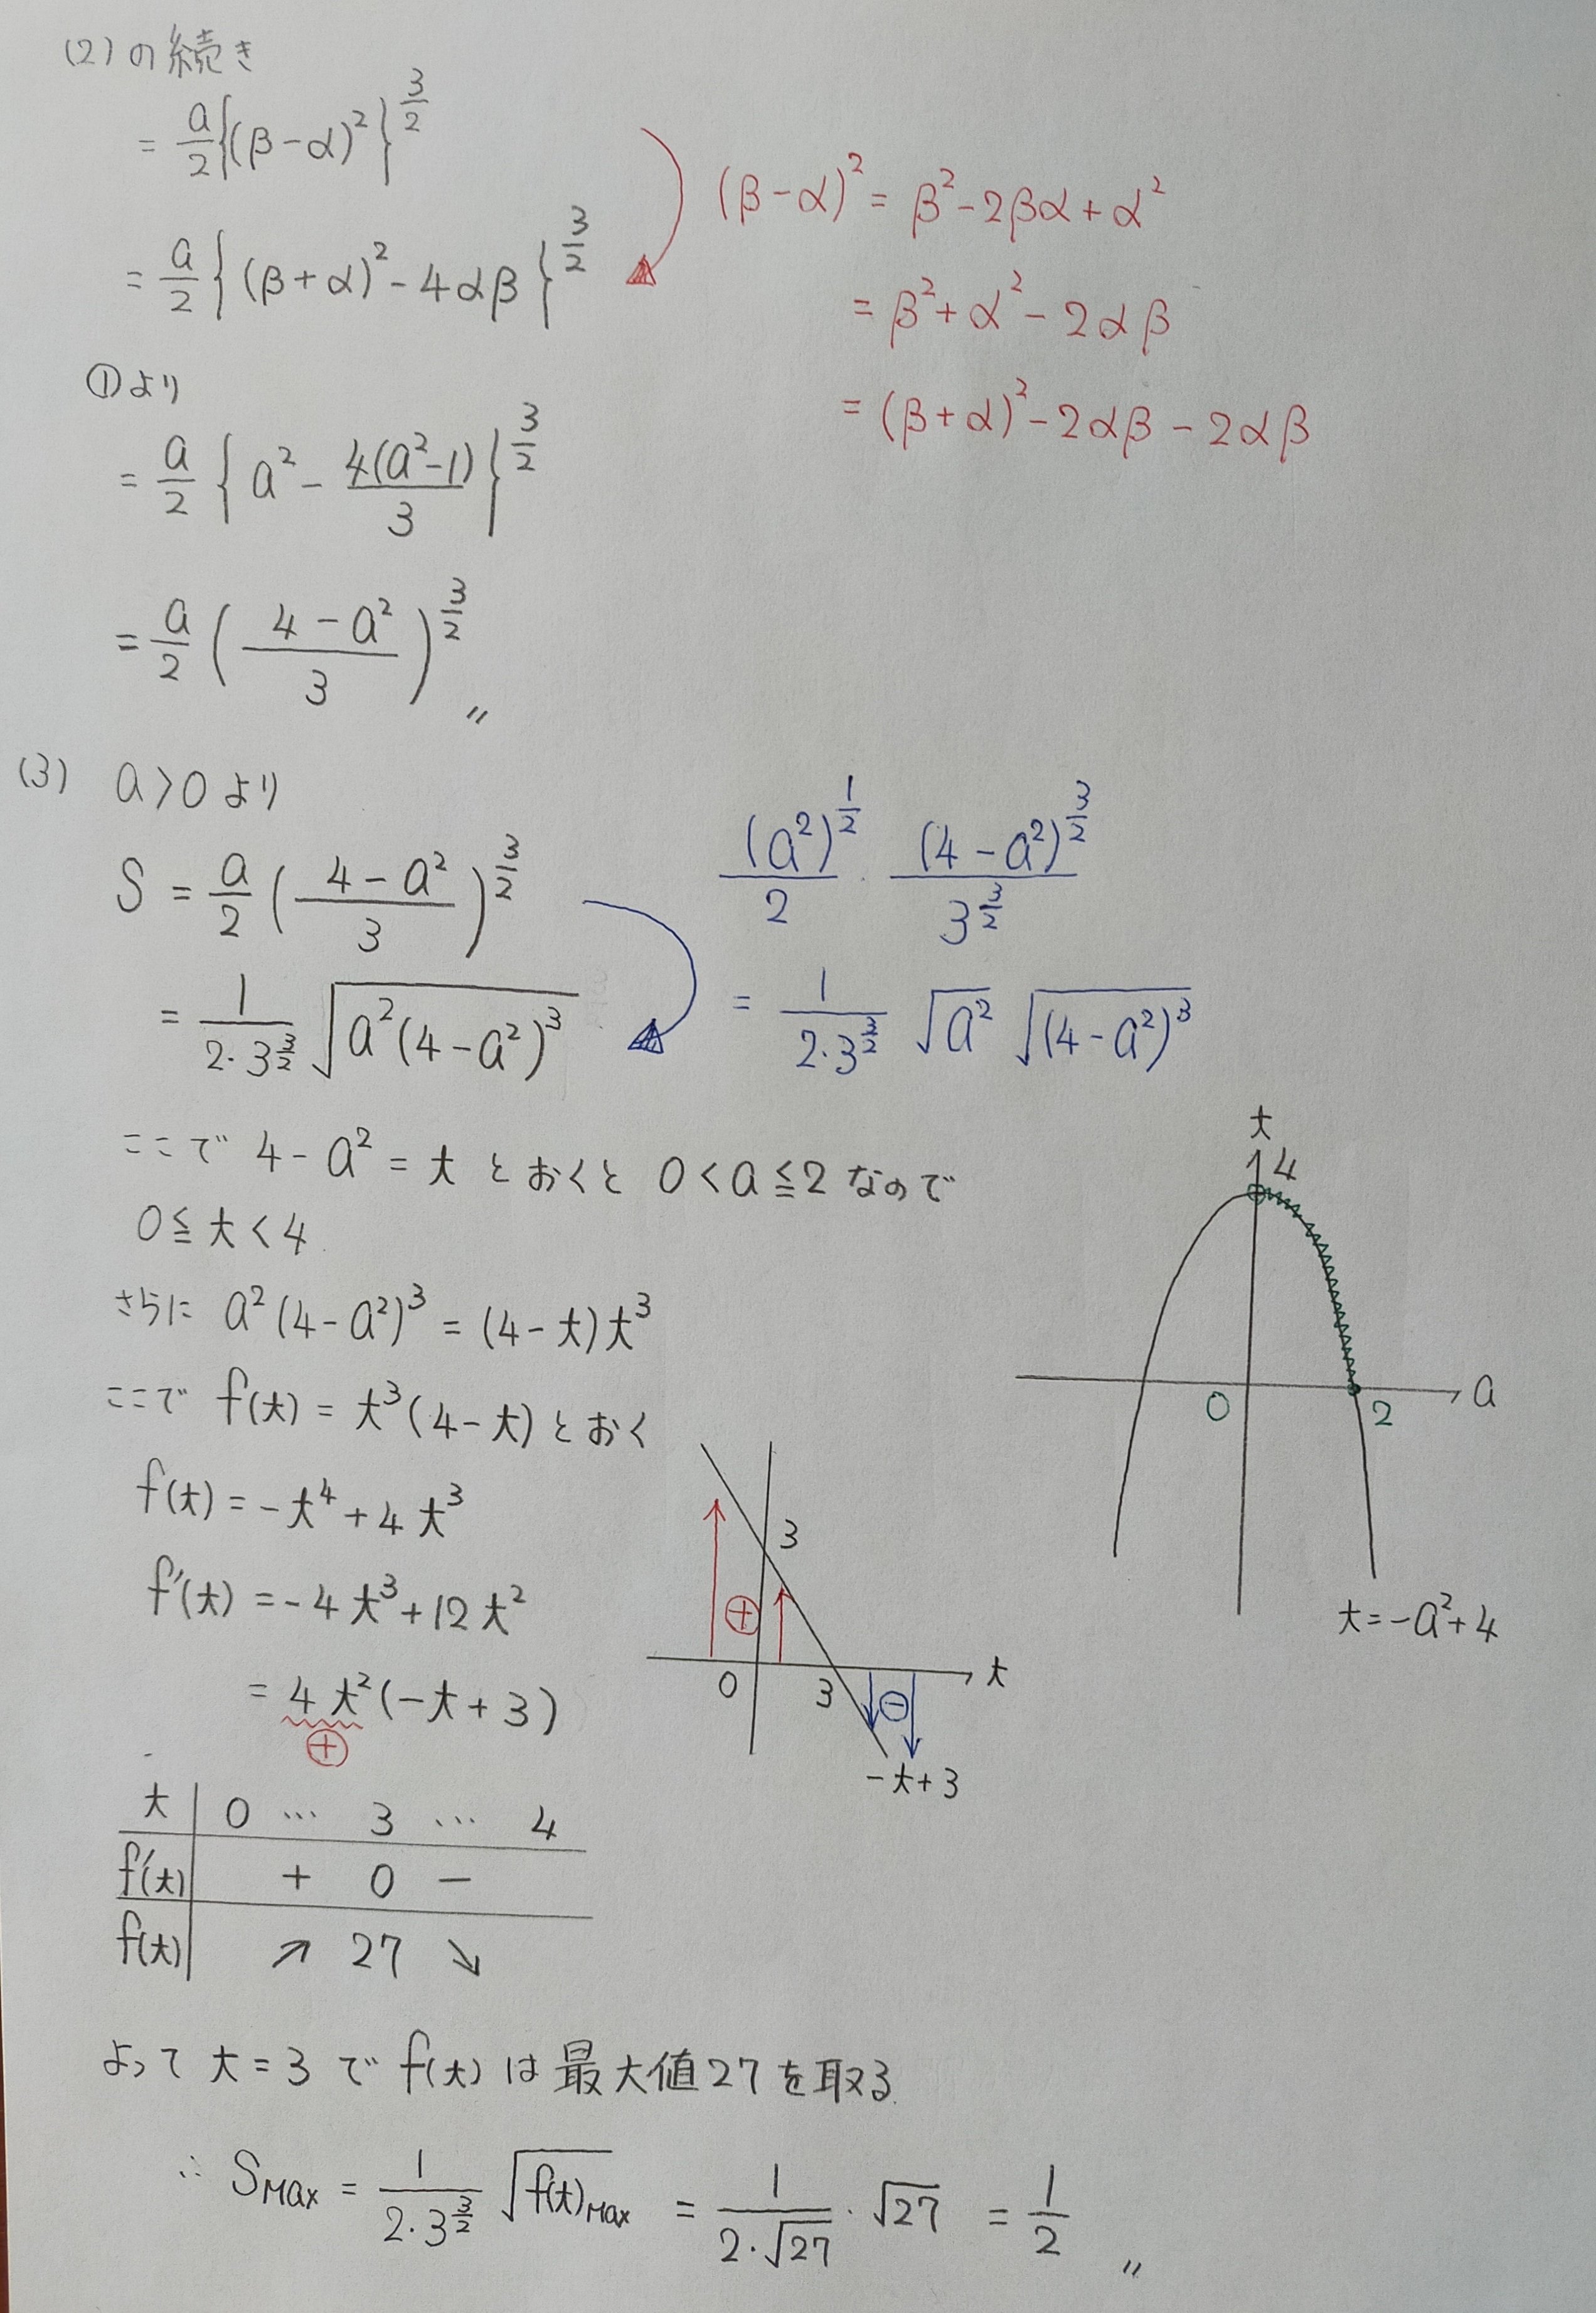 (2)の続き
= a/2 {(β-α)²}^(3/2)
= a/2 {(β+α)²-4αβ}^(3/2)
(β-α)² = β²-2βα+α²
= β²+α²-2αβ
= (β+α)²-2αβ-2αβ
①より
= a/2 {a² - 4(a²-1)/3}^(3/2)
= a/2 ((4-a²)/3)^(3/2) 〃
(3) a>0より
S = a/2 ((4-a²)/3)^(3/2)
= 1/(2・3^(3/2)) √(a²(4-a²)³)
(a²)^(1/2)/2 ・ (4-a²)^(3/2)/3^(3/2)
= 1/(2・3^(3/2)) √(a²) √((4-a²)³)
ここで 4-a²=t とおくと 0<a≦2 なので
0≦t<4
さらに a²(4-a²)³ = (4-t)t³
ここで f(t) = t³(4-t) とおく
f(t) = -t⁴+4t³
f'(t) = -4t³+12t²
= 4t²(-t+3)
⊕
t
4
0
2
a
t=-a²+4
3
⊕
0
3
⊖
t
-t+3
t | 0 … 3 … 4
f'(t) | + 0 -
f(t) | ↗ 27 ↘
よって t=3 で f(t) は最大値27を取る
∴ SMax = 1/(2・3^(3/2)) √(f(t)Max) = 1/(2・√27)・√27 = 1/2 〃